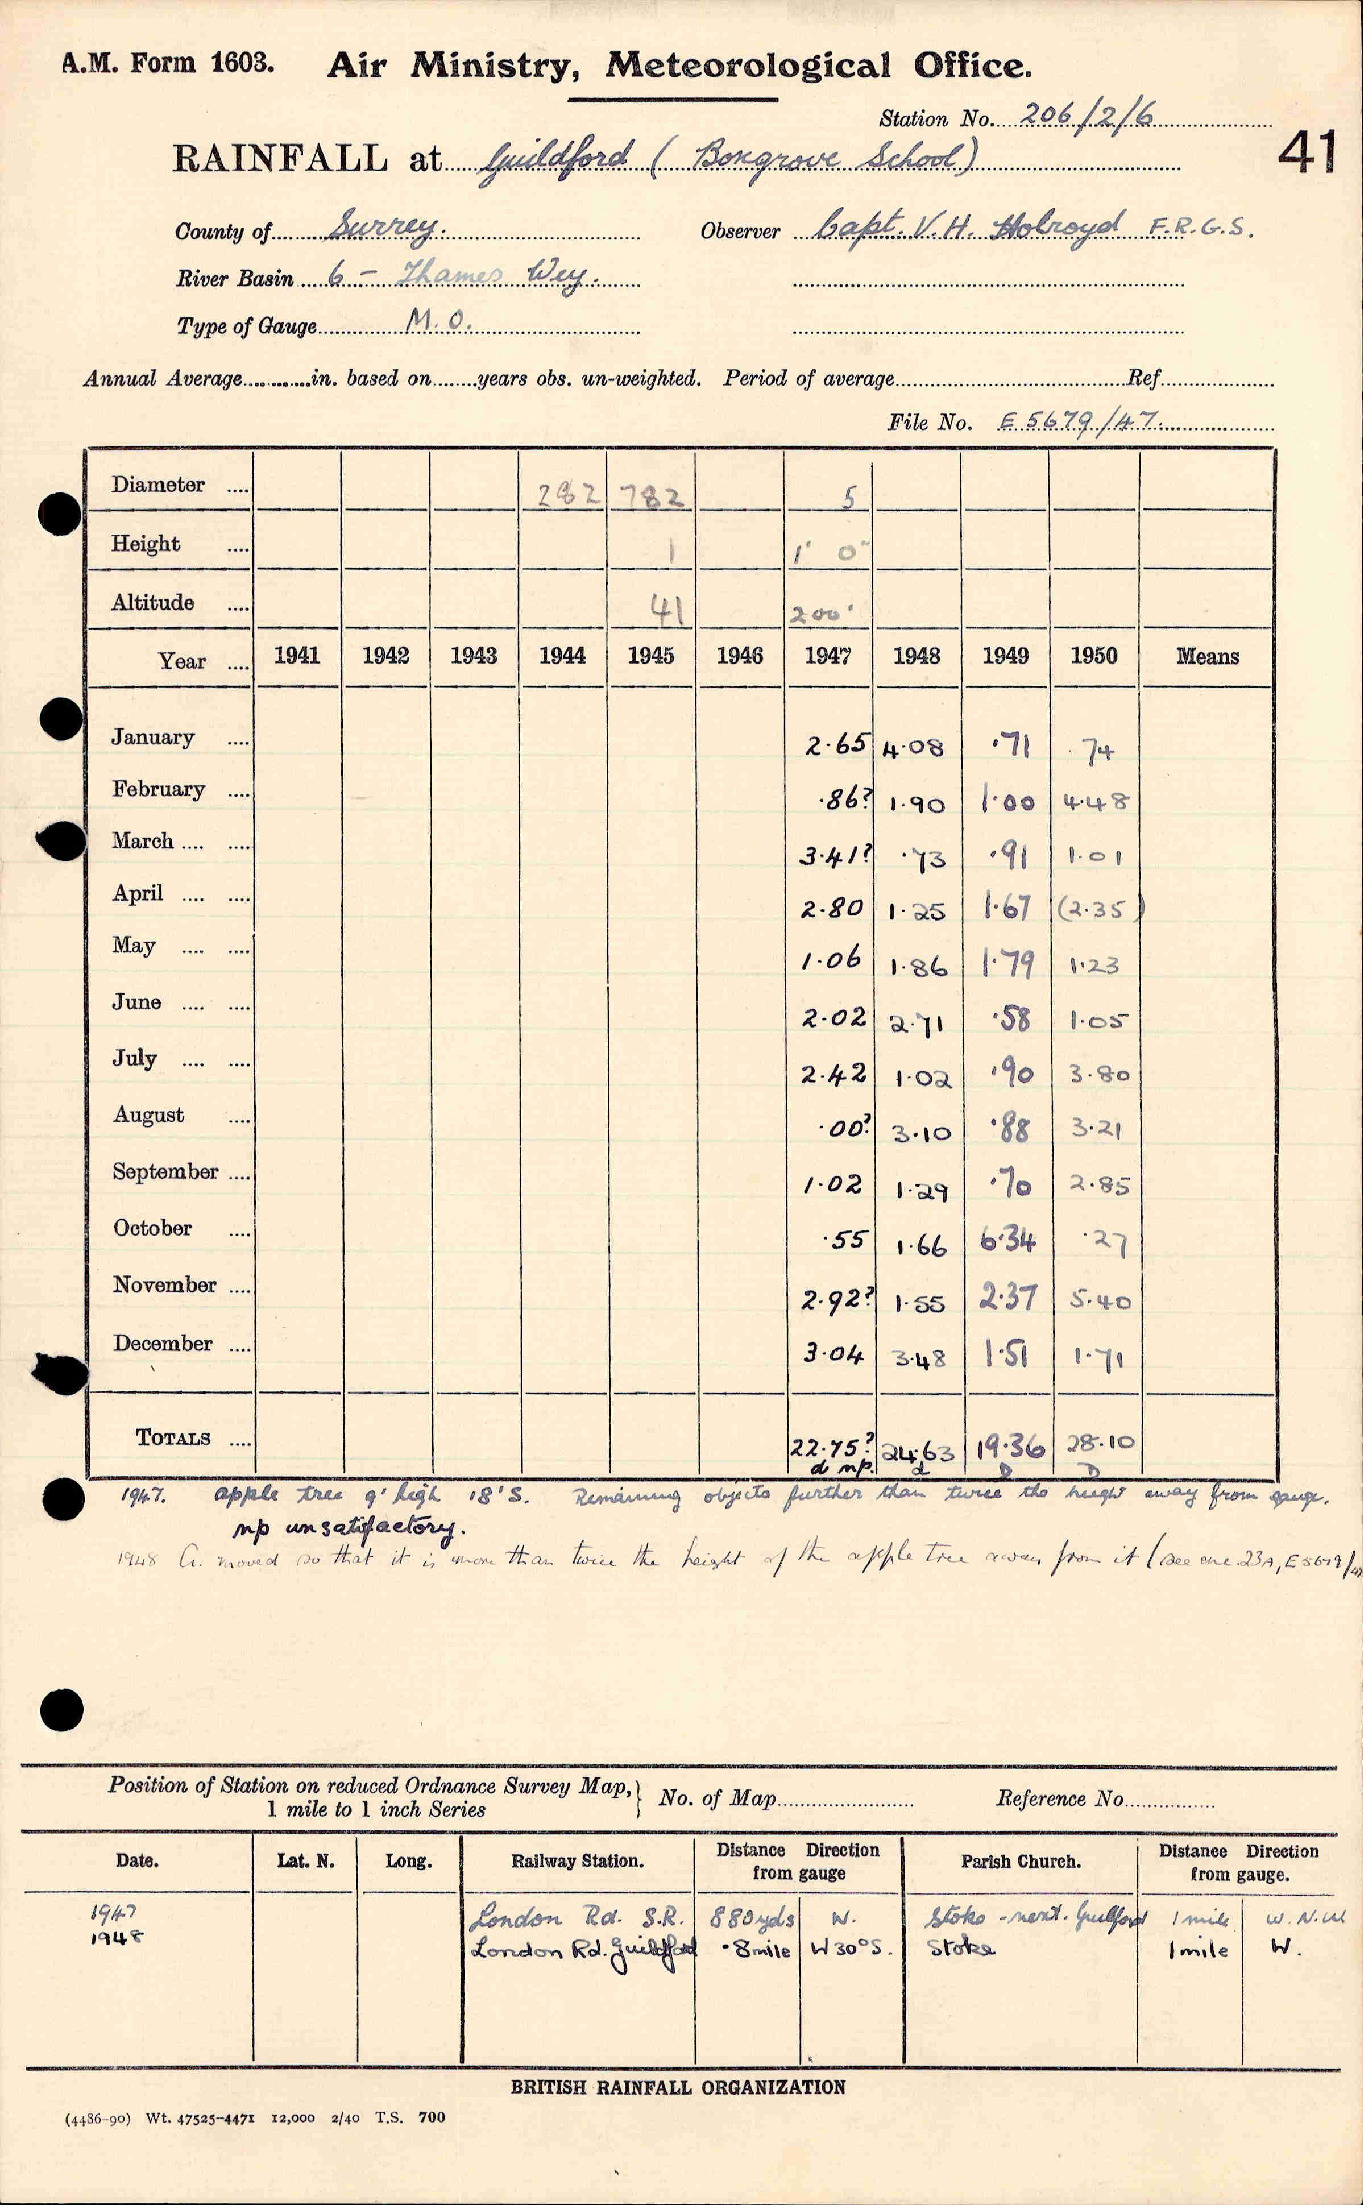 A.M. Form 1603. Air Ministry, Meteorological Office.
Station No. 206/2/6
41
RAINFALL at Guildford (Boxgrove School)
County of Surrey. Observer Capt. V.H. Holroyd F.R.G.S.
River Basin 6 - Thames Wey.
Type of Gauge M.O.
Annual Average............in. based on........years obs. un-weighted. Period of average........ Ref........
File No. E 5679/47
Diameter .... 282 782 5
Height .... 1 1' 0"
Altitude .... 41 200'
Year .... 1941 1942 1943 1944 1945 1946 1947 1948 1949 1950 Means
January .... 2.65 4.08 .71 .74
February .... .86? 1.90 1.00 4.48
March .... .... 3.41? .73 .91 1.01
April .... .... 2.80 1.25 1.67 (2.35)
May .... .... 1.06 1.86 1.79 1.23
June .... .... 2.02 2.71 .58 1.05
July .... .... 2.42 1.02 .90 3.80
August .... .00? 3.10 .88 3.21
September .... 1.02 1.29 .70 2.85
October .... .55 1.66 6.34 .27
November .... 2.92? 1.55 2.37 5.40
December .... 3.04 3.48 1.51 1.71
TOTALS .... 22.75? 24.63 19.36 28.10
d np. d D D
1947. apple tree 9' high 18'S. Remaining objects further than twice the height away from gauge.
np unsatisfactory.
1948 G. moved so that it is more than twice the height of the apple tree away from it (see enc 23A, E5679/47
Position of Station on reduced Ordnance Survey Map,} No. of Map........ Reference No........
1 mile to 1 inch Series
Date. Lat. N. Long. Railway Station. Distance Direction from gauge Parish Church. Distance Direction from gauge.
1947 London Rd. S.R. 880yds W. Stoke-next-Guilford 1 mile W.N.W
1948 London Rd. Guildford .8mile W30°S. Stoke 1mile W.
BRITISH RAINFALL ORGANIZATION
(4486-90) Wt. 47525-4471 12,000 2/40 T.S. 700